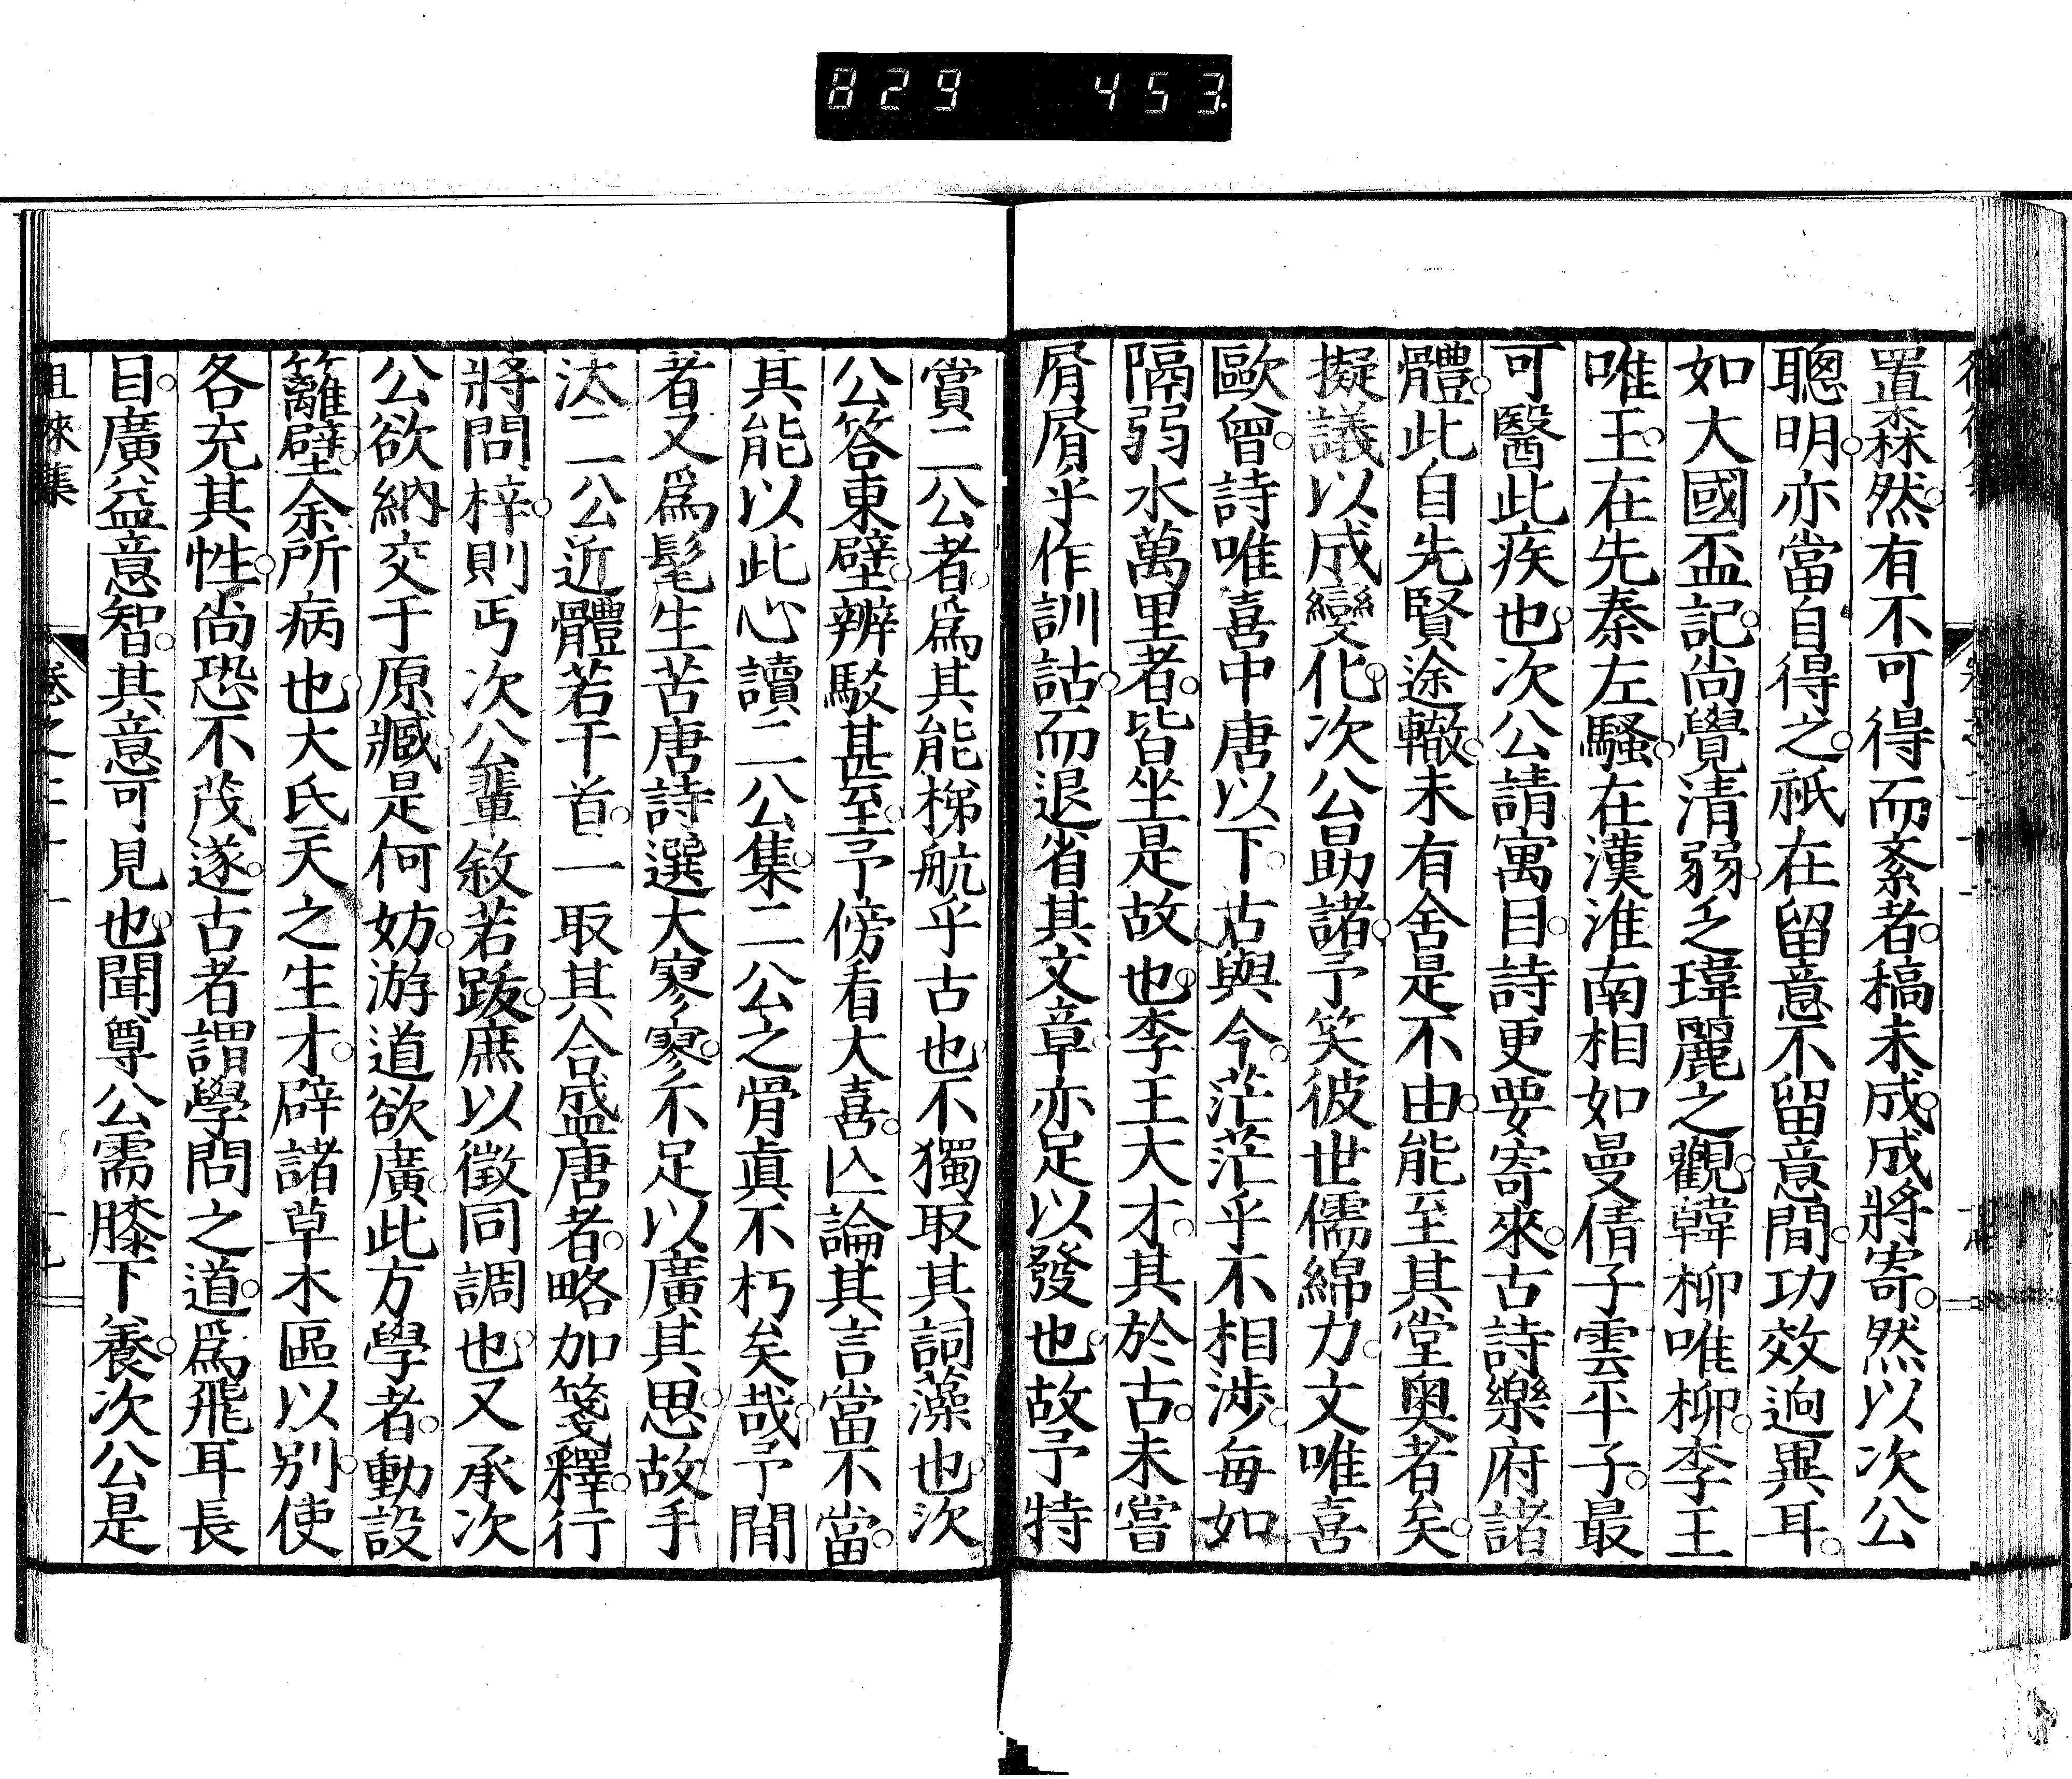 829 453
置森然有不可得而紊者稿未成成將寄然以次公
聰明亦當自得之祇在留意不留意間功效逈異耳
如大國盃記尚覺清弱乏瑋麗之觀韓柳唯柳李王
唯王在先秦左騷在漢淮南相如曼倩子雲平子最
可醫此疾也次公請寓目詩更要寄來古詩樂府諸
體此自先賢途轍未有舍是不由能至其堂奧者矣
擬議以成變化次公勗諸予笑彼世儒綿力文唯喜
歐曾詩唯喜中唐以下古與今茫茫乎不相涉每如
隔弱水萬里者皆坐是故也李王大才其於古未嘗
屑屑乎作訓詁而退省其文章亦足以發也故予特
賞二公者爲其能梯航乎古也不獨取其詞藻也次
公答東壁辨駁甚至予傍看大喜亾論其言當不當
其能以此心讀二公集二公之骨眞不朽矣哉予間
者又爲髦生苦唐詩選大寥寥不足以廣其思故手
汰二公近體若干首一取其合盛唐者略加箋釋行
將問梓則丐次公輩敘若跋庶以徵同調也又承次
公欲納交于原臧是何妨游道欲廣此方學者動設
籬壁余所病也大氐天之生才辟諸草木區以別使
各充其性尚恐不茂遂古者謂學問之道爲飛耳長
目廣益意智其意可見也聞尊公需膝下養次公是
徂徠集 卷之二十